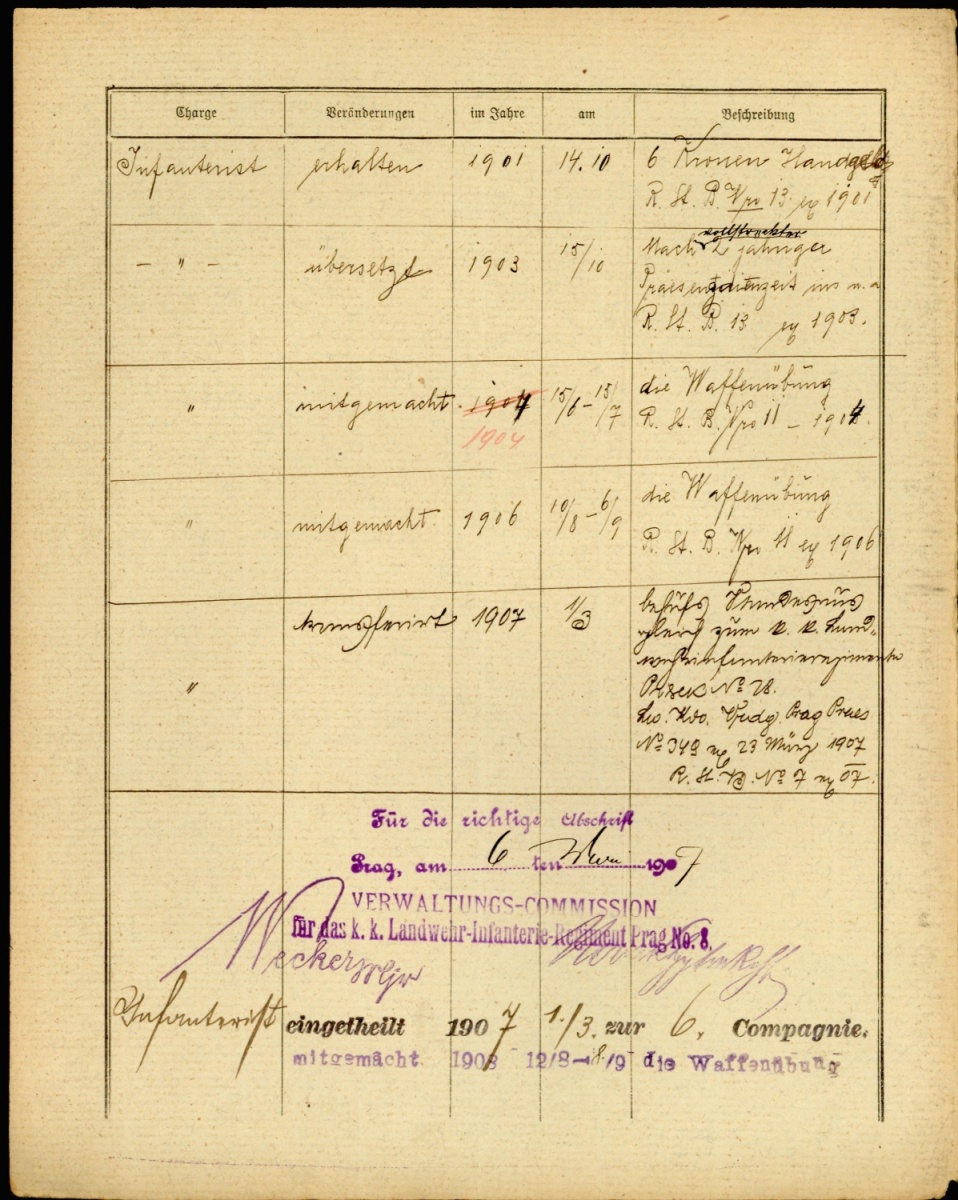 Charge Veränderungen im Jahre am Beschreibung
Infanterist erhalten 1901 14.10 6 Kronen Handgeld
R. St. B. Nro 13 ex 1901
vollstreckter
– " – übersetzt 1903 15/10 Nach 2 jähriger
Praesenzdienzeit ins n. a
R. St. B. 13 ex 1903.
" mitgemacht. 1904 15/6 – 15/7 die Waffenübung
1904 R. St. B. Nro 11 – 1904.
" mitgemacht. 1906 10/8 – 6/9 die Waffenübung
R. St. B. Nro 11 ex 1906
" transferirt 1907 1/3 behufs Standesaus
gleich zum k. k. Land-
wehrinfanterieregimente
Pisek No 28.
Prag Praes
No 349 ex 23 März 1907
R. St. B. No 7 ex 07.
Für die richtige Abschrift
Prag, am 6 ten 1907
VERWALTUNGS-COMMISSION
für das k. k. Landwehr-Infanterie-Regiment Prag No. 8.
Infanterist eingetheilt 1907 1./3. zur 6. Compagnie.
mitgemacht 1908 12/8–8/9 die Waffenübung